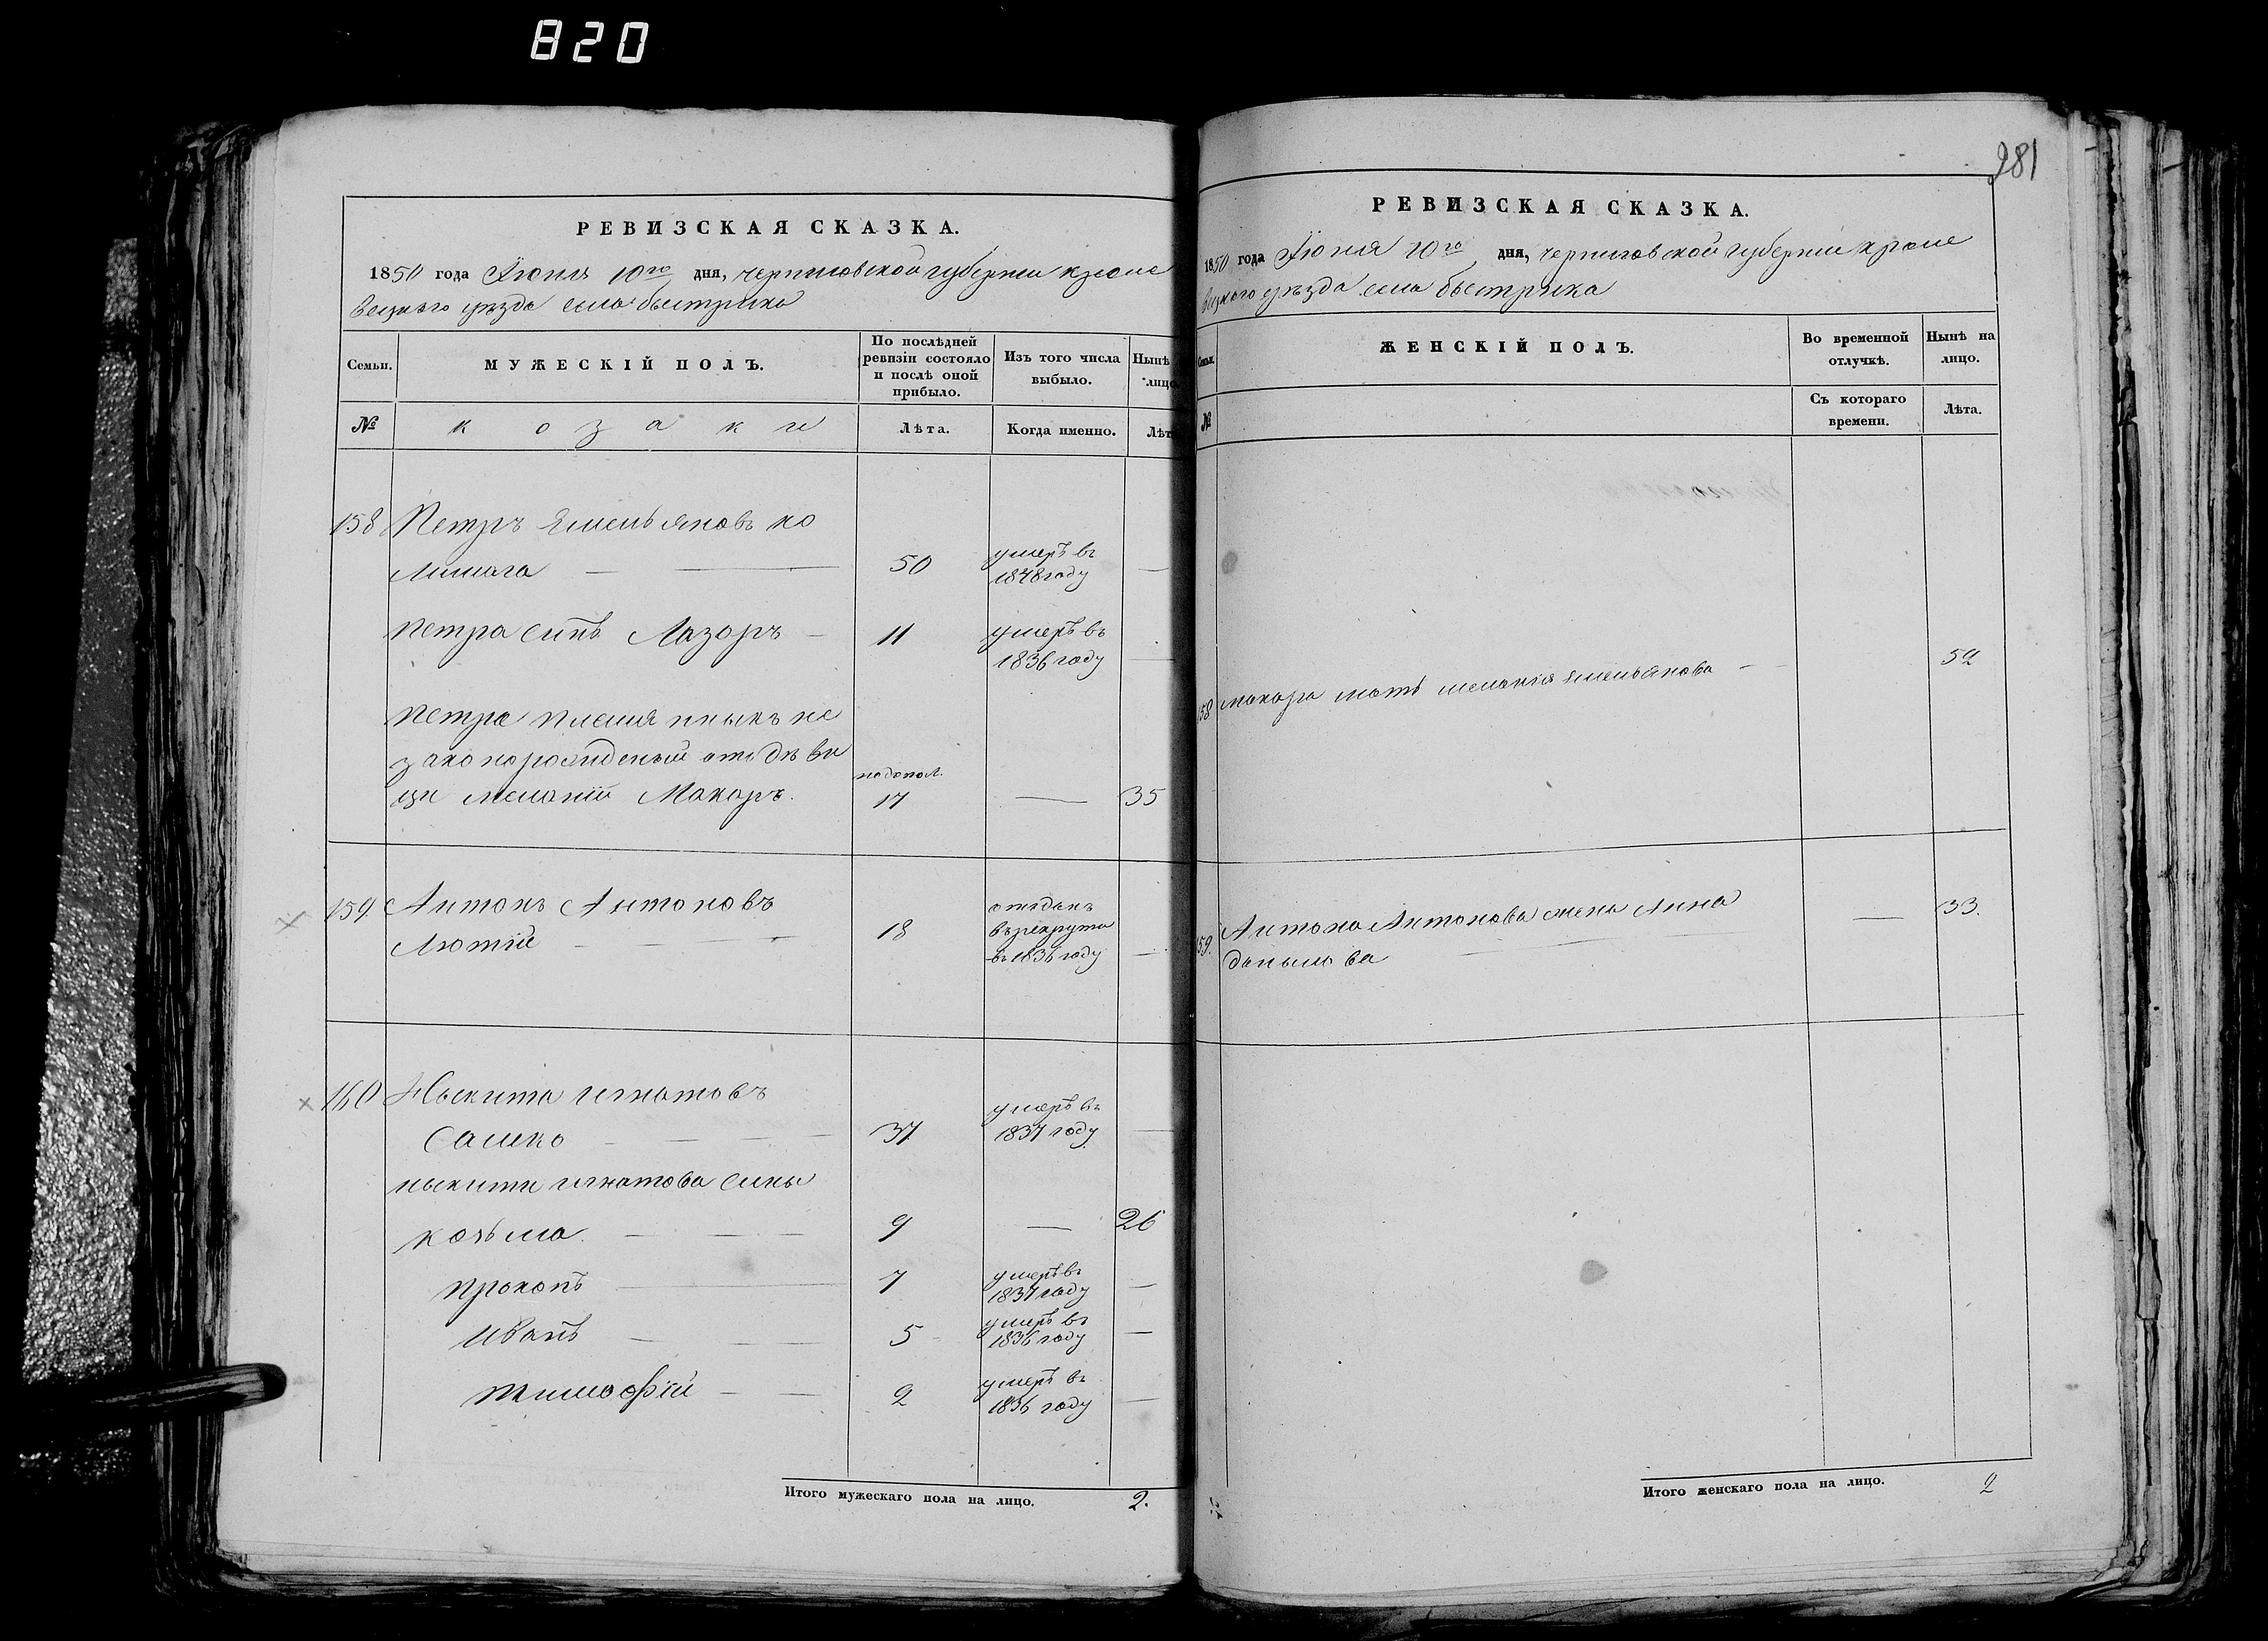 820
РЕВИЗСКАЯ СКАЗКА.
1850 года Июня 10го дня, черниговской губернии кроле
вецкаго уѣзда села быстрика
Семьи.
МУЖЕСКІЙ ПОЛЪ.
По послѣдней ревизіи состояло и послѣ оной прибыло.
Изъ того числа выбыло.
Нынѣ лицо
№
козаки
Лѣта.
Когда именно.
Лѣт
158 Петръ Емельяновъ
50 умеръ въ 1848 году —
Петра синъ Лазоръ — 11 умеръ въ 1836 году —
Петра племянныкъ не
законорожденый отъ дѣви
ци меланіи Макаръ. 17 — 35
159 Антонъ Антоновъ
Лютій — — — 18 отданъ въ рекруты въ 1836 году —
160 Ныкита игнатовъ
Сашко — — — 37 умеръ въ 1837 году —
ныкити игнатова сины
козьма. — — — 9 — 26
прокопъ — 7 умеръ въ 1837 году —
иванъ — — 5 умеръ въ 1836 году —
тимофій — — 2 умеръ въ 1836 году —
Итого мужескаго пола на лицо. 2.
281
РЕВИЗСКАЯ СКАЗКА.
1850 года Июня 10го дня, черниговской губернии кроле
вецкаго уѣзда села быстрика
Семьи.
ЖЕНСКІЙ ПОЛЪ.
Во временной отлучкѣ.
Нынѣ на лицо.
№
Съ котораго времени.
Лѣта.
158 макара мать мелания Емельянова — 52
159. Антона Антонова жена Анна — 33.
данылова
Итого женскаго пола на лицо. 2